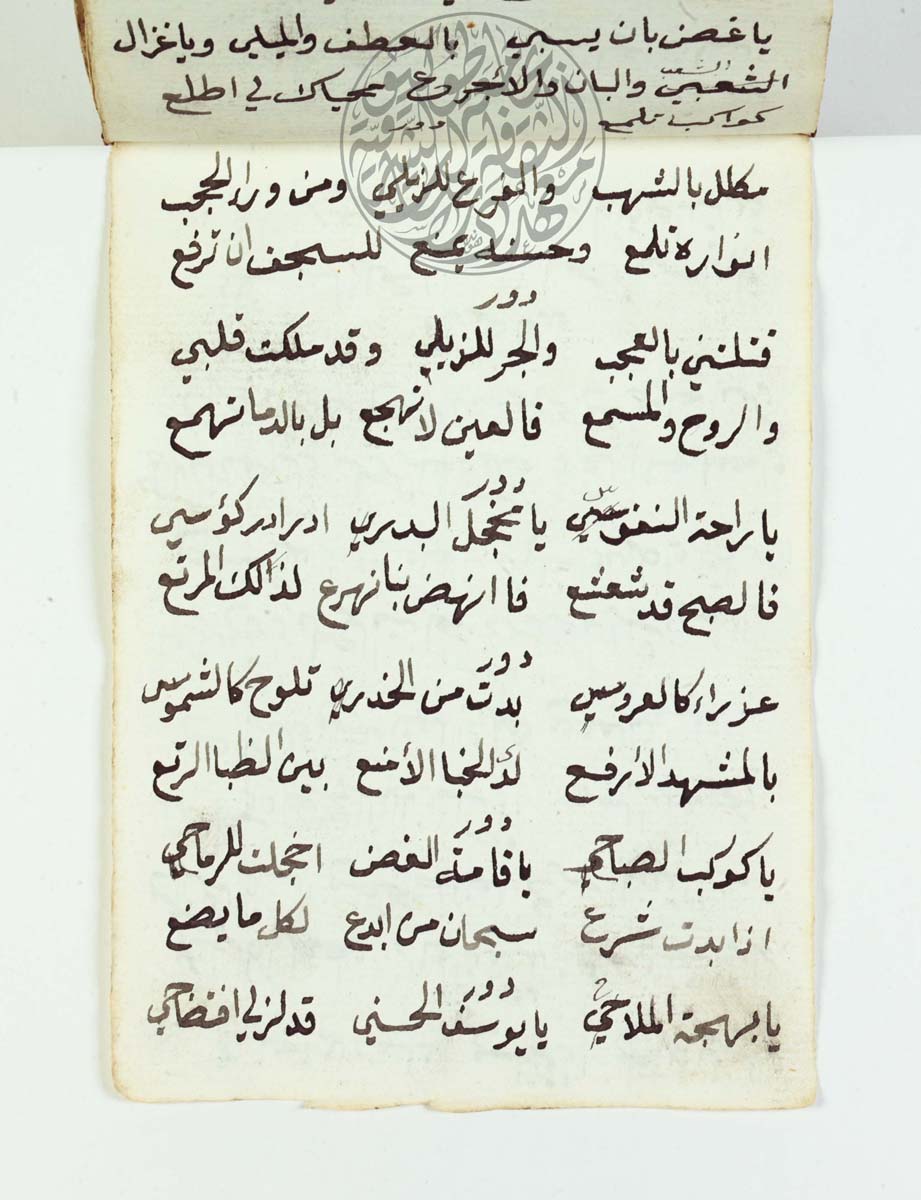 ياغصن بان يسبي بالعطف والميلي وياغزال
الشعبي والبان والأجرع محياك لي اطلع
كواكب تلمع دور
مكلل بالشهب والفرع للزيلي ومن ورا الحجب
انواره تلمع وحسنه يمنع للسجف ان ترفع
دور
قتلتني بالعجب والجر للزيلي وقد ملكت قلبي
والروح والمسمع فالعين لا تهجع بل بالدما تهمع
دور
ياراحة النفوسي يا مخجل البدري ادر ادر كؤسي
فالصبح قد شعشع فاانهض بنا نهرع لذالك المرتع
دور
عزراء كالعروسي بدت من الخدري تلوح كالشموسي
بالمشهد الأرفع لذ الخبا الأمنع بين الظبا الرتع
دور
ياكوكب الصباحي ياقامة الغصن اخجلت للرماحي
اذا بدت شرع سبحان من ابدع لكل ما يضع
دور
يابهجة الملاحي يايوسف الحسني قد لزلي افتضاحي